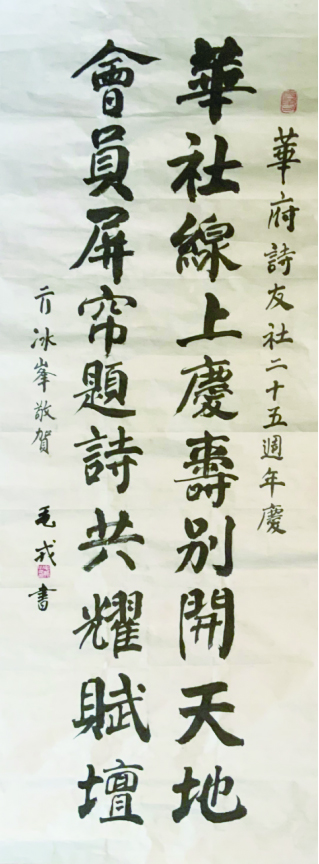 華府詩友社二十五週年慶
華社線上慶壽別開天地
會員屏帘題詩共耀賦壇
冰峯敬賀
毛戎書